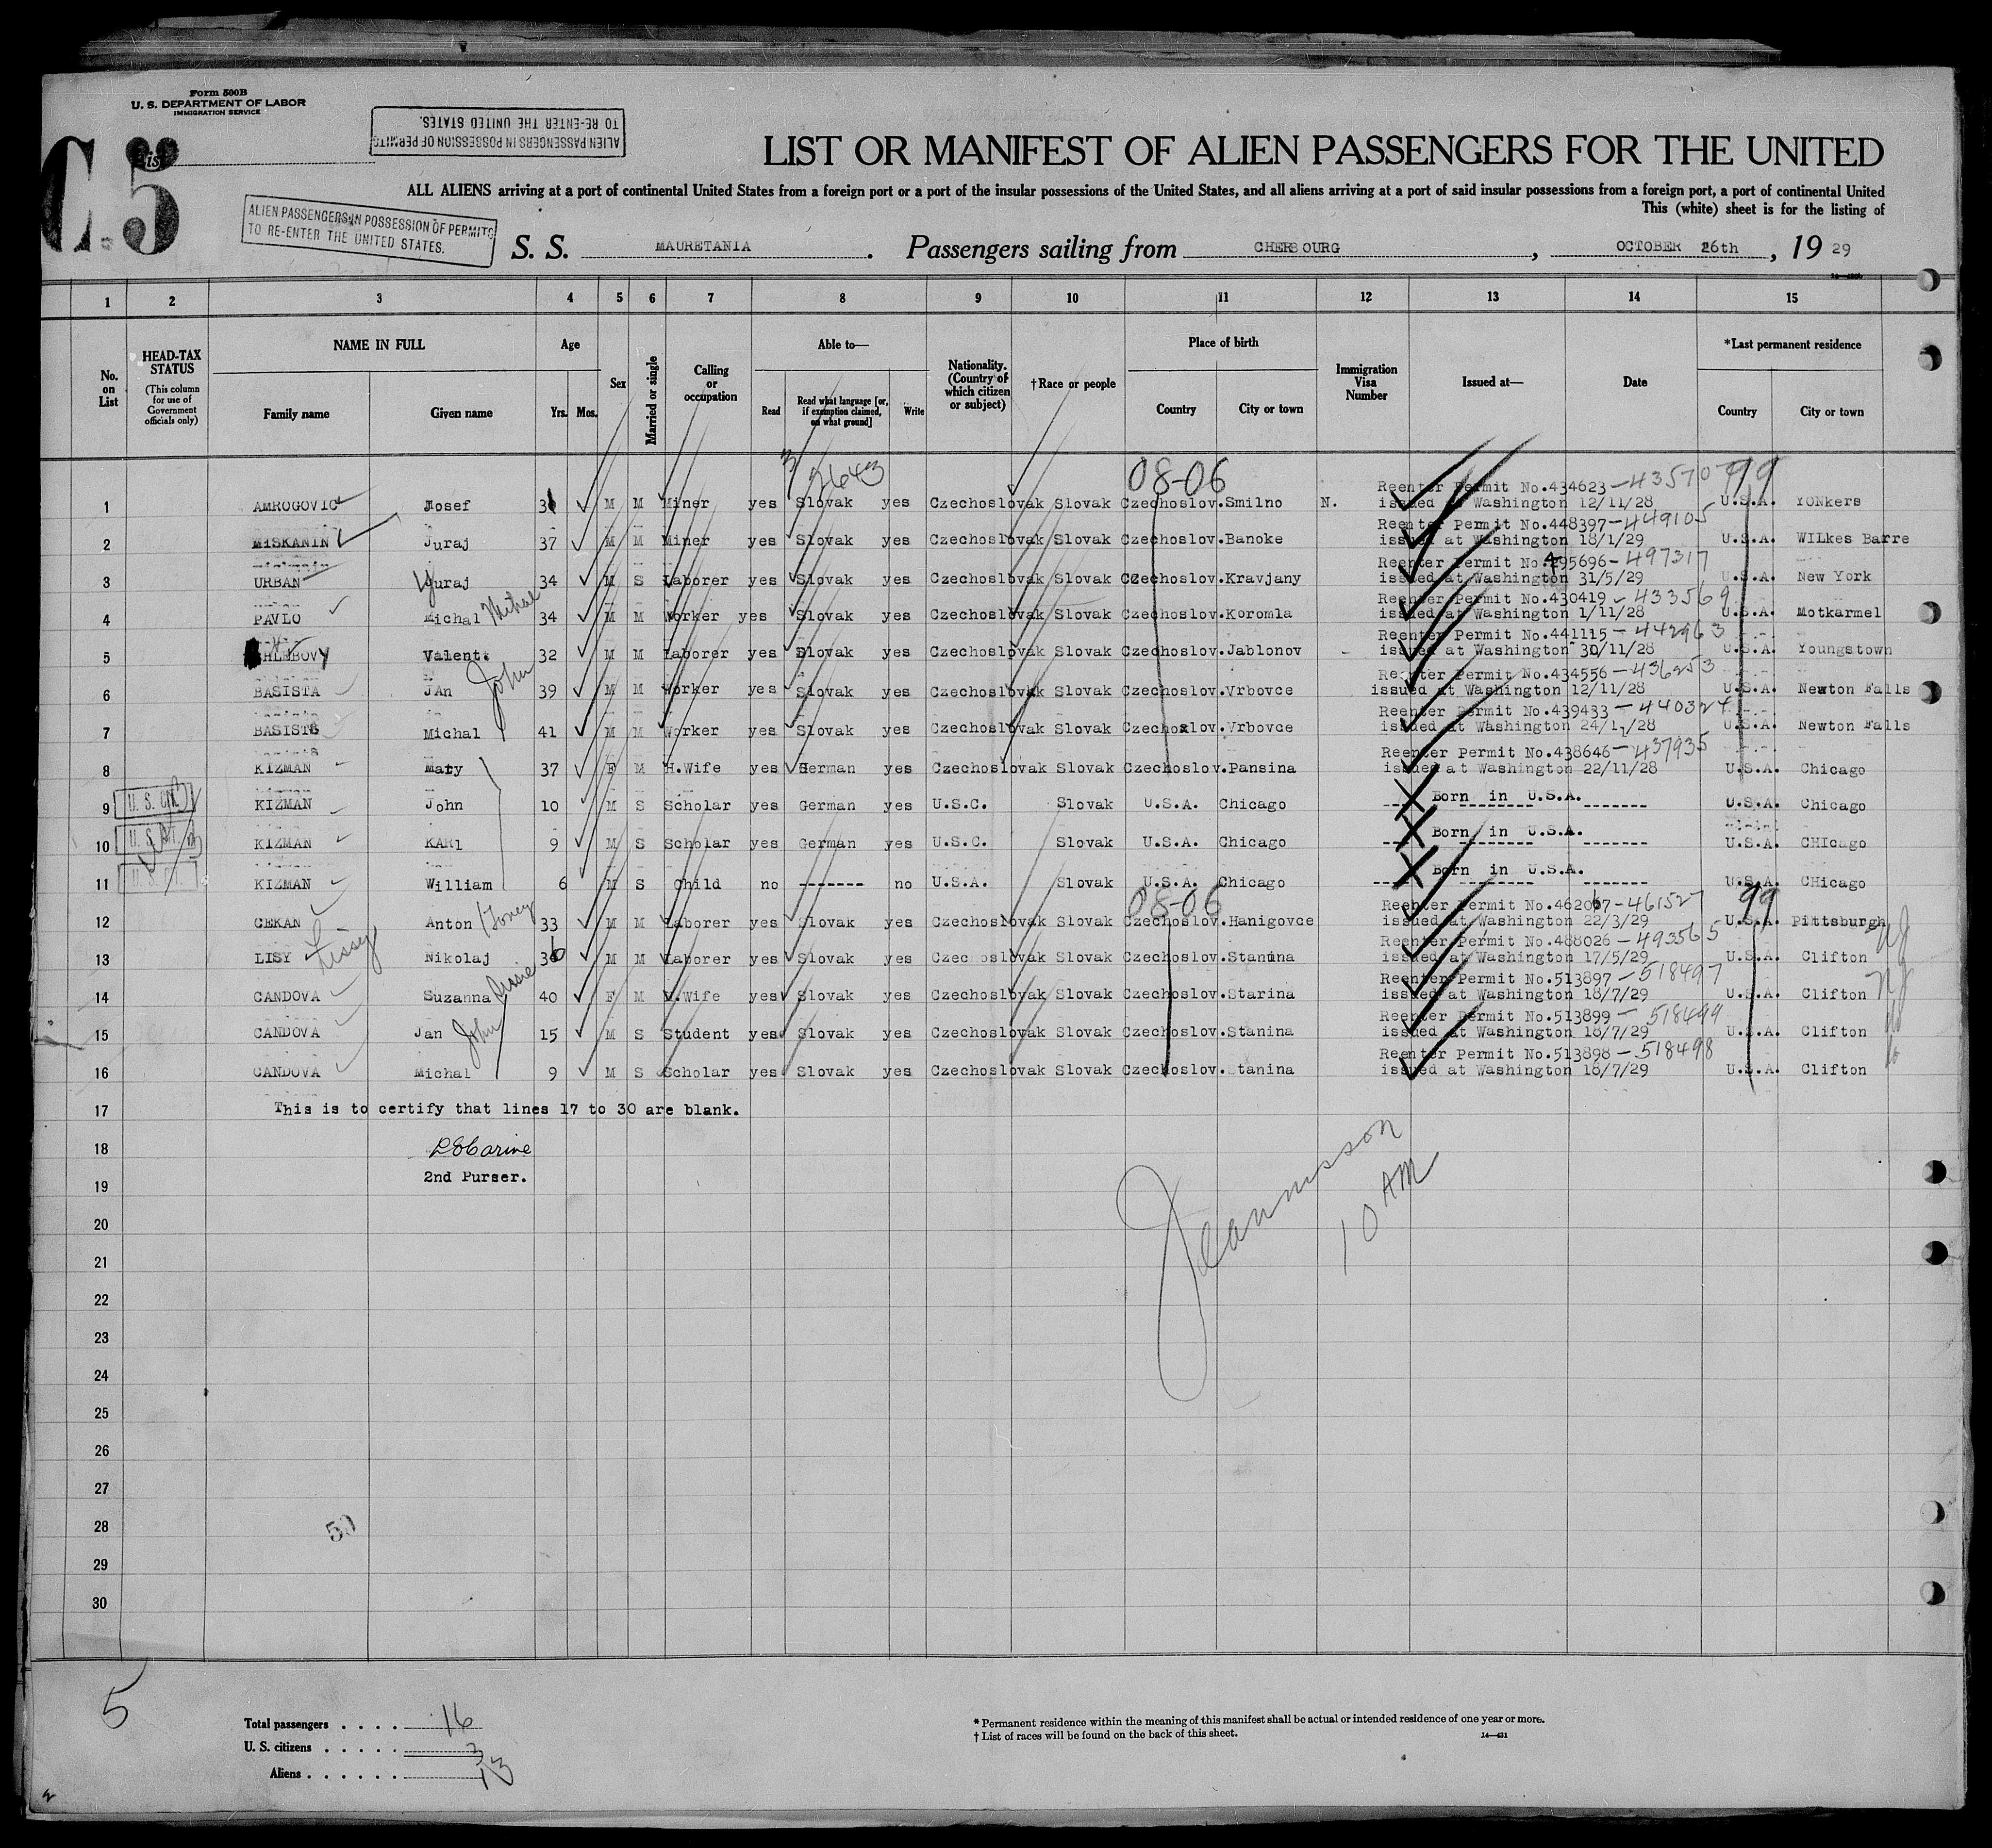 Form 500B
U. S. DEPARTMENT OF LABOR
IMMIGRATION SERVICE
C. 5
ALIEN PASSENGERS IN POSSESSION OF PERMITS
TO RE-ENTER THE UNITED STATES.
LIST OR MANIFEST OF ALIEN PASSENGERS FOR THE UNITED
ALL ALIENS arriving at a port of continental United States from a foreign port or a port of the insular possessions of the United States, and all aliens arriving at a port of said insular possessions from a foreign port, a port of continental United
This (white) sheet is for the listing of
ALIEN PASSENGERS IN POSSESSION OF PERMITS
TO RE-ENTER THE UNITED STATES.
S. S. MAURETANIA . Passengers sailing from CHERBOURG , OCTOBER 26th , 19 29
1 2 3 4 5 6 7 8 9 10 11 12 13 14 15
No. on List
HEAD-TAX STATUS
(This column for use of Government officials only)
NAME IN FULL
Family name Given name
Age
Yrs. Mos.
Sex
Married or single
Calling or occupation
Able to—
Read Read what language [or, if exemption claimed, on what ground] Write
Nationality. (Country of which citizen or subject)
†Race or people
Place of birth
Country City or town
Immigration Visa Number
Issued at—
Date
*Last permanent residence
Country City or town
08-06 99
Reenter Permit No.434623
1 AMROGOVIC Josef M M Miner yes Slovak yes Czechoslovak Slovak Czechoslov. Smilno N. issued at Washington 12/11/28 U.S.A. YONkers
Reenter Permit No.448397-449105
2 MISKANIN Juraj 37 M M Miner yes Slovak yes Czechoslovak Slovak Czechoslov. Banoke issued at Washington 18/1/29 U.S.A. WILkes Barre
Reenter Permit No.495696-497317
3 URBAN Juraj 34 M S Laborer yes Slovak yes Czechoslovak Slovak Czechoslov. Kravjany issued at Washington 31/5/29 U.S.A. New York
Reenter Permit No.430419-433569
4 PAVLO Michal Mihal 34 M M Worker yes Slovak yes Czechoslovak Slovak Czechoslov. Koromla issued at Washington 1/11/28 U.S.A. Motkarmel
Reenter Permit No.441115-442963
5 Valent. 32 M M Laborer yes Slovak yes Czechoslovak Slovak Czechoslov. Jablonov issued at Washington 30/11/28 U.S.A. Youngstown
Reenter Permit No.434556-436253
6 BASISTA JAn John 39 M M Worker yes Slovak yes Czechoslovak Slovak Czechoslov. Vrbovce issued at Washington 12/11/28 U.S.A. Newton Falls
Reenter Permit No.439433-440324
7 Michal 41 M M Worker yes Slovak yes Czechoslovak Slovak Czechoslov. Vrbovce issued at Washington 24/11/28 U.S.A. Newton Falls
Reenter Permit No.438646-437935
8 KIZMAN Mary 37 F M H.Wife yes German yes Czechoslovak Slovak Czechoslov. Pansina issued at Washington 22/11/28 U.S.A. Chicago
9 U. S. CIT. KIZMAN John 10 M S Scholar yes German yes U.S.C. Slovak U.S.A. Chicago Born in U.S.A. U.S.A. Chicago
10 U. S. CIT. KIZMAN KARl 9 M S Scholar yes German yes U.S.C. Slovak U.S.A. Chicago Born in U.S.A. U.S.A. CHIcago
11 U. S. CIT. KIZMAN William 6 M S Child no ------- no U.S.A. Slovak U.S.A. Chicago Born in U.S.A. U.S.A. CHicago
08-06 99
Reenter Permit No.462067-461527
12 CEKAN Anton /Toney 33 M M Laborer yes Slovak yes Czechoslovak Slovak Czechoslov. Hanigovce issued at Washington 22/3/29 U.S.A. Pittsburgh
Reenter Permit No.488026-493565
13 LISY Lissy Nikolaj 36 M M Laborer yes Slovak yes Czechoslovak Slovak Czechoslov. Stanina issued at Washington 17/5/29 U.S.A. Clifton NJ
Reenter Permit No.513897-518497
14 CANDOVA Suzanna 40 F M H.Wife yes Slovak yes Czechoslovak Slovak Czechoslov. Starina issued at Washington 18/7/29 U.S.A. Clifton NJ
Reenter Permit No.513899-518499
15 CANDOVA Jan John 15 M S Student yes Slovak yes Czechoslovak Slovak Czechoslov. Stanina issued at Washington 18/7/29 U.S.A. Clifton do
Reenter Permit No.513898-518498
16 CANDOVA Michal 9 M S Scholar yes Slovak yes Czechoslovak Slovak Czechoslov. Stanina issued at Washington 18/7/29 U.S.A. Clifton do
17 This is to certify that lines 17 to 30 are blank.
18
2nd Purser.
19
20
10 AM
21
22
23
24
25
26
27
28 50
29
30
5
Total passengers . . . . 16
U. S. citizens . . . . . 3
Aliens . . . . . . 13
* Permanent residence within the meaning of this manifest shall be actual or intended residence of one year or more.
† List of races will be found on the back of this sheet.
14—431